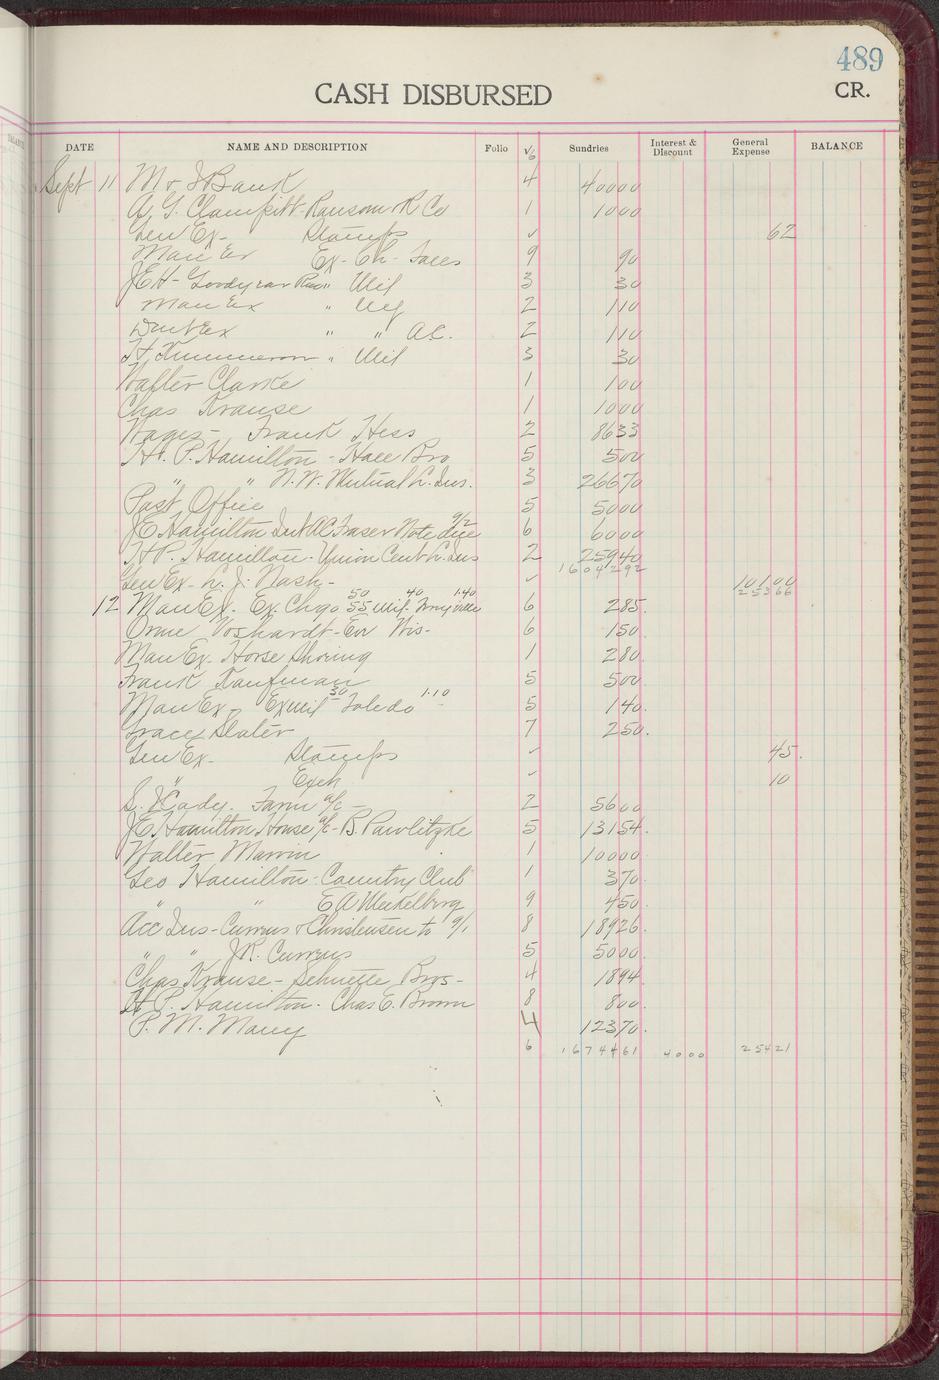 489
CASH DISBURSED
CR.
DATE NAME AND DESCRIPTION Folio √ 6 Sundries Interest & Discount General Expense BALANCE
Sept 11 Mr J Bank 4 40000
A. G. Clampitt - Ransom R Co 1 1000
Gen Ex - Stamps ✓ 62
Man Ex Ex - Ch - Sales 9 90
JEH - Goodyear " Mil 3 30
Man Ex " 2 110
Ex " " A.C. 2 110
H. " Mil 3 30
Walter Clarke 1 100
Chas Krause 1 1000
Wages - Frank Hess 2 8633
H. P. Hamilton - Hall Bro 5 500
" " N. W. Mutual L. Ins. 3 26670
Post Office 5 5000
J E Hamilton Int A C Fraser Note due 9/2 6 6000
H P. Hamilton - Union Cent L. Ins 2 25940
1604292
Gen Ex - L. J. Nash - ✓ 10100
25366
12 Man Ex. Ex. Chgo 50 55 Mil 40 ville 1.40 6 285
Orme Voshardt - Wis - 6 150
Man Ex. Horse Shoeing 1 280
Frank Kaufman 5 500
Man Ex - Ex Mil 30 Toledo 1.10 5 140
Grace Slater 7 250.
Gen Ex - Stamps ✓ 45.
" Exch ✓ 10
S. J Cady. Farm a/c - 2 5600
J.E. Hamilton House a/c - B. Pawlitzke 5 13154.
Walter Marvin 1 10000
Geo Hamilton - Country Club 1 370.
" " E A Meckelberg 9 450.
Acc Ins - Currens & Christensen to 9/1 8 18926.
" " J.R. Currens 5 5000.
Chas Krause - Schuette Bros - 4 1894
H. P. Hamilton - Chas E. Brown 8 800.
P. M. Many 4 12370.
6 1674461 4000 25421